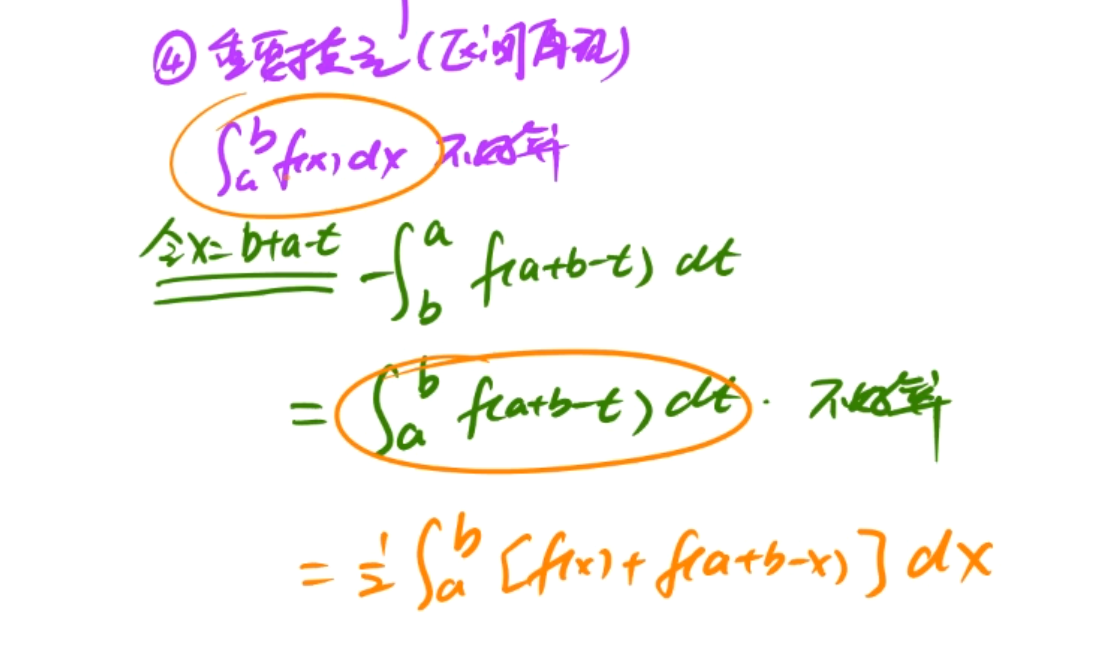 ④ 重要推论(区间再现)
∫_a^b f(x) dx 不好算
令x=b+a-t -∫_b^a f(a+b-t) dt
= ∫_a^b f(a+b-t) dt. 不好算
= 1/2 ∫_a^b [f(x) + f(a+b-x)] dx